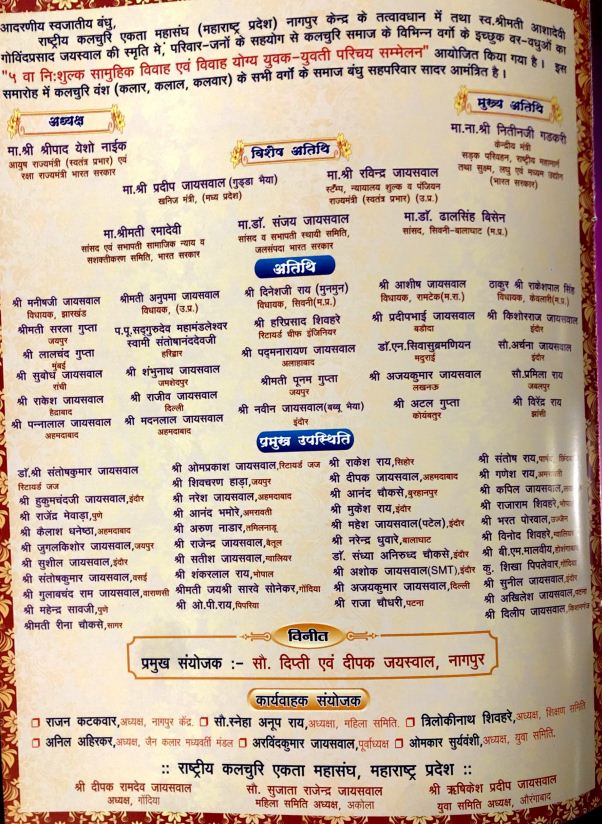 आदरणीय स्वजातीय बंधु,
राष्ट्रीय कलचुरि एकता महासंघ (महाराष्ट्र प्रदेश) नागपुर केन्द्र के तत्वावधान में तथा स्व.श्रीमती आशादेवी
गोविंदप्रसाद जयसवाल की स्मृति मे, परिवार-जनों के सहयोग से कलचुरि समाज के विभिन्न वर्गो के इच्छुक वर-वधुओं का
"५ वा नि:शुल्क सामुहिक विवाह एवं विवाह योग्य युवक-युवती परिचय सम्मेलन" आयोजित किया गया है। इस
समारोह में कलचुरि वंश (कलार, कलाल, कलवार) के सभी वर्गो के समाज बंधु सहपरिवार सादर आमंत्रित है।
अध्यक्ष
मा.श्री श्रीपाद येशो नाईक
आयुष राज्यमंत्री (स्वतंत्र प्रभार) एवं
रक्षा राज्यमंत्री भारत सरकार
मुख्य अतिथि
मा.ना.श्री नितीनजी गडकरी
केन्द्रीय मंत्री
सड़क परिवहन, राष्ट्रीय महामार्ग
तथा सुक्ष्म, लघु एवं मध्यम उद्योग
(भारत सरकार)
विशेष अतिथि
मा.श्री प्रदीप जायसवाल (गुड्डा भैया)
खनिज मंत्री, (मध्य प्रदेश)
मा.श्री रविन्द्र जायसवाल
स्टॅम्प, न्यायालय शुल्क व पंजियन
राज्यमंत्री (स्वतंत्र प्रभार) (उ.प्र.)
मा.श्रीमती रमादेवी
सांसद एवं सभापती सामाजिक न्याय व
सशक्तीकरण समिति, भारत सरकार
मा.डॉ. संजय जायसवाल
सांसद व सभापती स्थायी समिति,
जलसंपदा भारत सरकार
मा.डॉ. ढालसिंह बिसेन
सांसद, सिवनी-बालाघाट (म.प्र.)
अतिथि
श्री मनीषजी जायसवाल
विधायक, झारखंड
श्रीमती सरला गुप्ता
जयपुर
श्री लालचंद गुप्ता
मुंबई
श्री सुबोध जायसवाल
रांची
श्री राकेश जायसवाल
हैद्राबाद
श्री पन्नालाल जायसवाल
अहमदाबाद
श्रीमती अनुपमा जायसवाल
विधायक, (उ.प्र.)
प.पू.सद्गुरुदेव महामंडलेश्वर
स्वामी संतोषानंददेवजी
हरिद्वार
श्री शंभुनाथ जायसवाल
जमशेदपुर
श्री राजीव जायसवाल
दिल्ली
श्री मदनलाल जायसवाल
अहमदाबाद
श्री दिनेशजी राय (मुनमुन)
विधायक, सिवनी(म.प्र.)
श्री हरिप्रसाद शिवहरे
रिटायर्ड चीफ इंजिनियर
श्री पदमनारायण जायसवाल
अलाहाबाद
श्रीमती पूनम गुप्ता
जयपुर
श्री नवीन जायसवाल(बब्बू भैया)
इंदौर
श्री आशीष जायसवाल
विधायक, रामटेक(म.रा.)
श्री प्रदीपभाई जायसवाल
बडौदा
डॉ.एन.सिवासुब्रमणियन
मदुराई
श्री अजयकुमार जायसवाल
लखनऊ
श्री अटल गुप्ता
कोयंबतुर
ठाकुर श्री राकेशपाल सिंह
विधायक, केवलारी(म.प्र.)
श्री किशोरराज जायसवाल
इंदौर
सौ.अर्चना जायसवाल
इंदौर
सौ.प्रमिला राय
जबलपुर
श्री विरेंद्र राय
झांसी
प्रमुख उपस्थिति
डॉ.श्री संतोषकुमार जायसवाल
रिटायर्ड जज
श्री हुकुमचंदजी जायसवाल,इंदौर
श्री राजेंद्र मेवाड़ा,पुणे
श्री कैलाश धनेष्ठा,अहमदाबाद
श्री जुगलकिशोर जायसवाल,जयपुर
श्री सुशील जायसवाल,इंदौर
श्री संतोषकुमार जायसवाल,वसई
श्री गुलाबचंद राम जायसवाल,वाराणसी
श्री महेन्द्र सावजी,पुणे
श्रीमती रीना चौकसे,सागर
श्री ओमप्रकाश जायसवाल,रिटायर्ड जज
श्री शिवचरण हाड़ा,जयपुर
श्री नरेश जायसवाल,अहमदाबाद
श्री आनंद भमोरे,अमरावती
श्री अरुण नाडार,तमिलनाडू
श्री राजेन्द्र जायसवाल,बेतूल
श्री सतीश जायसवाल,ग्वालियर
श्री शंकरलाल राय,भोपाल
श्रीमती जयश्री सारवे सोनेकर,गोंदिया
श्री ओ.पी.राय,पिपरिया
श्री राकेश राय,सिहोर
श्री दीपक जायसवाल,अहमदाबाद
श्री आनंद चौकसे,बुरहानपुर
श्री मुकेश राय,इंदौर
श्री महेश जायसवाल(पटेल),इंदौर
श्री नरेन्द्र धुवारे,बालाघाट
डॉ. संध्या अनिरुध्द चौकसे,इंदौर
श्री अशोक जायसवाल(SMT),इंदौर
श्री अजयकुमार जायसवाल,दिल्ली
श्री राजा चौधरी,पटना
श्री संतोष राय,पार्षद
श्री गणेश राय,अमरावती
श्री कपिल जायसवाल,
श्री राजाराम शिवहरे,भोपाल
श्री भरत पोरवाल,उज्जैन
श्री विनोद शिवहरे,ग्वालियर
श्री बी.एम.मालवीय,होशंगाबाद
कु. शिखा पिपलेवार,गोंदिया
श्री सुनील जायसवाल,इंदौर
श्री अखिलेश जायसवाल,पटना
श्री दिलीप जायसवाल,किशनगंज
विनीत
प्रमुख संयोजक :- सौ. दिप्ती एवं दीपक जयस्वाल, नागपुर
कार्यवाहक संयोजक
राजन कटकवार,अध्यक्ष, नागपुर केंद्र. सौ.स्नेहा अनूप राय,अध्यक्षा, महिला समिति. त्रिलोकीनाथ शिवहरे,अध्यक्ष, शिक्षण समिति
अनिल अहिरकर,अध्यक्ष, जैन कलार मध्यवर्ती मंडल अरविंदकुमार जायसवाल,पूर्वाध्यक्ष ओमकार सुर्यवंशी,अध्यक्ष, युवा समिति.
:: राष्ट्रीय कलचुरि एकता महासंघ, महाराष्ट्र प्रदेश ::
श्री दीपक रामदेव जायसवाल
अध्यक्ष, गोंदिया
सौ. सुजाता राजेन्द्र जायसवाल
महिला समिति अध्यक्ष, अकोला
श्री ऋषिकेश प्रदीप जायसवाल
युवा समिति अध्यक्ष, औरंगाबाद